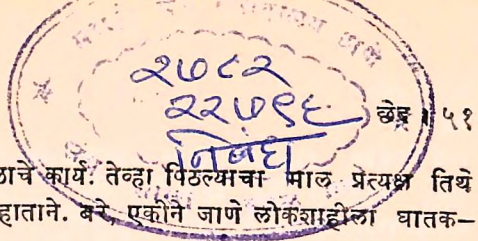 २७८२
२२७९६
निबंध
छेद ५१
ठाचे कार्य. तेव्हा पिठल्याचा माल प्रत्यक्ष तिथे
हाताने. बरे, एकीने जाणे लोकशाहीला घातक–